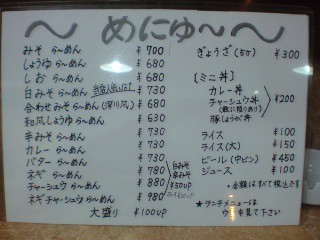 ～ めにゅ～ ～
みそ ら～めん ¥700
しょうゆ ら～めん ¥680
しお ら～めん ¥680
白みそ ら～めん 当店人気No.1 ¥730
合わせ みそら～めん(深川風) ¥730
和風しょうゆ ら～めん ¥630
辛みそ ら～めん ¥730
カレー ら～めん ¥730
バター ら～めん ¥730
ネギ ら～めん ¥780
チャーシュウ ら～めん ¥880
ネギチャーシュウ ら～めん ¥980
白みそ
辛みそ
¥50UP
大盛り ¥100UP
ぎょうざ(5ヶ) ¥300
[ミニ丼]
カレー丼
チャーシュウ丼
(数に限りあり)
豚しょうが丼
¥200
ライス ¥100
ライス(大) ¥150
ビール(中ビン) ¥450
ジュース ¥100
・金額はすべて税込です
★ランチメニューは
ウラを見て下さい